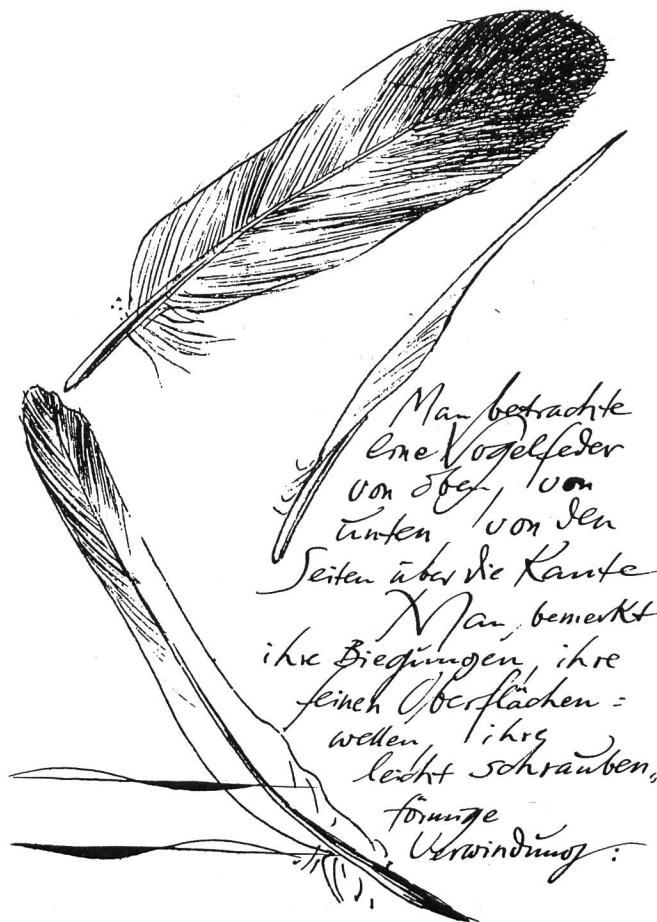 Man betrachte
eine Vogelfeder
von oben, von
unten, von den
Seiten über die Kante
Man bemerkt
ihre Biegungen, ihre
feinen Oberflächen=
wellen, ihre
leicht schrauben„
förmige
Verwindung: